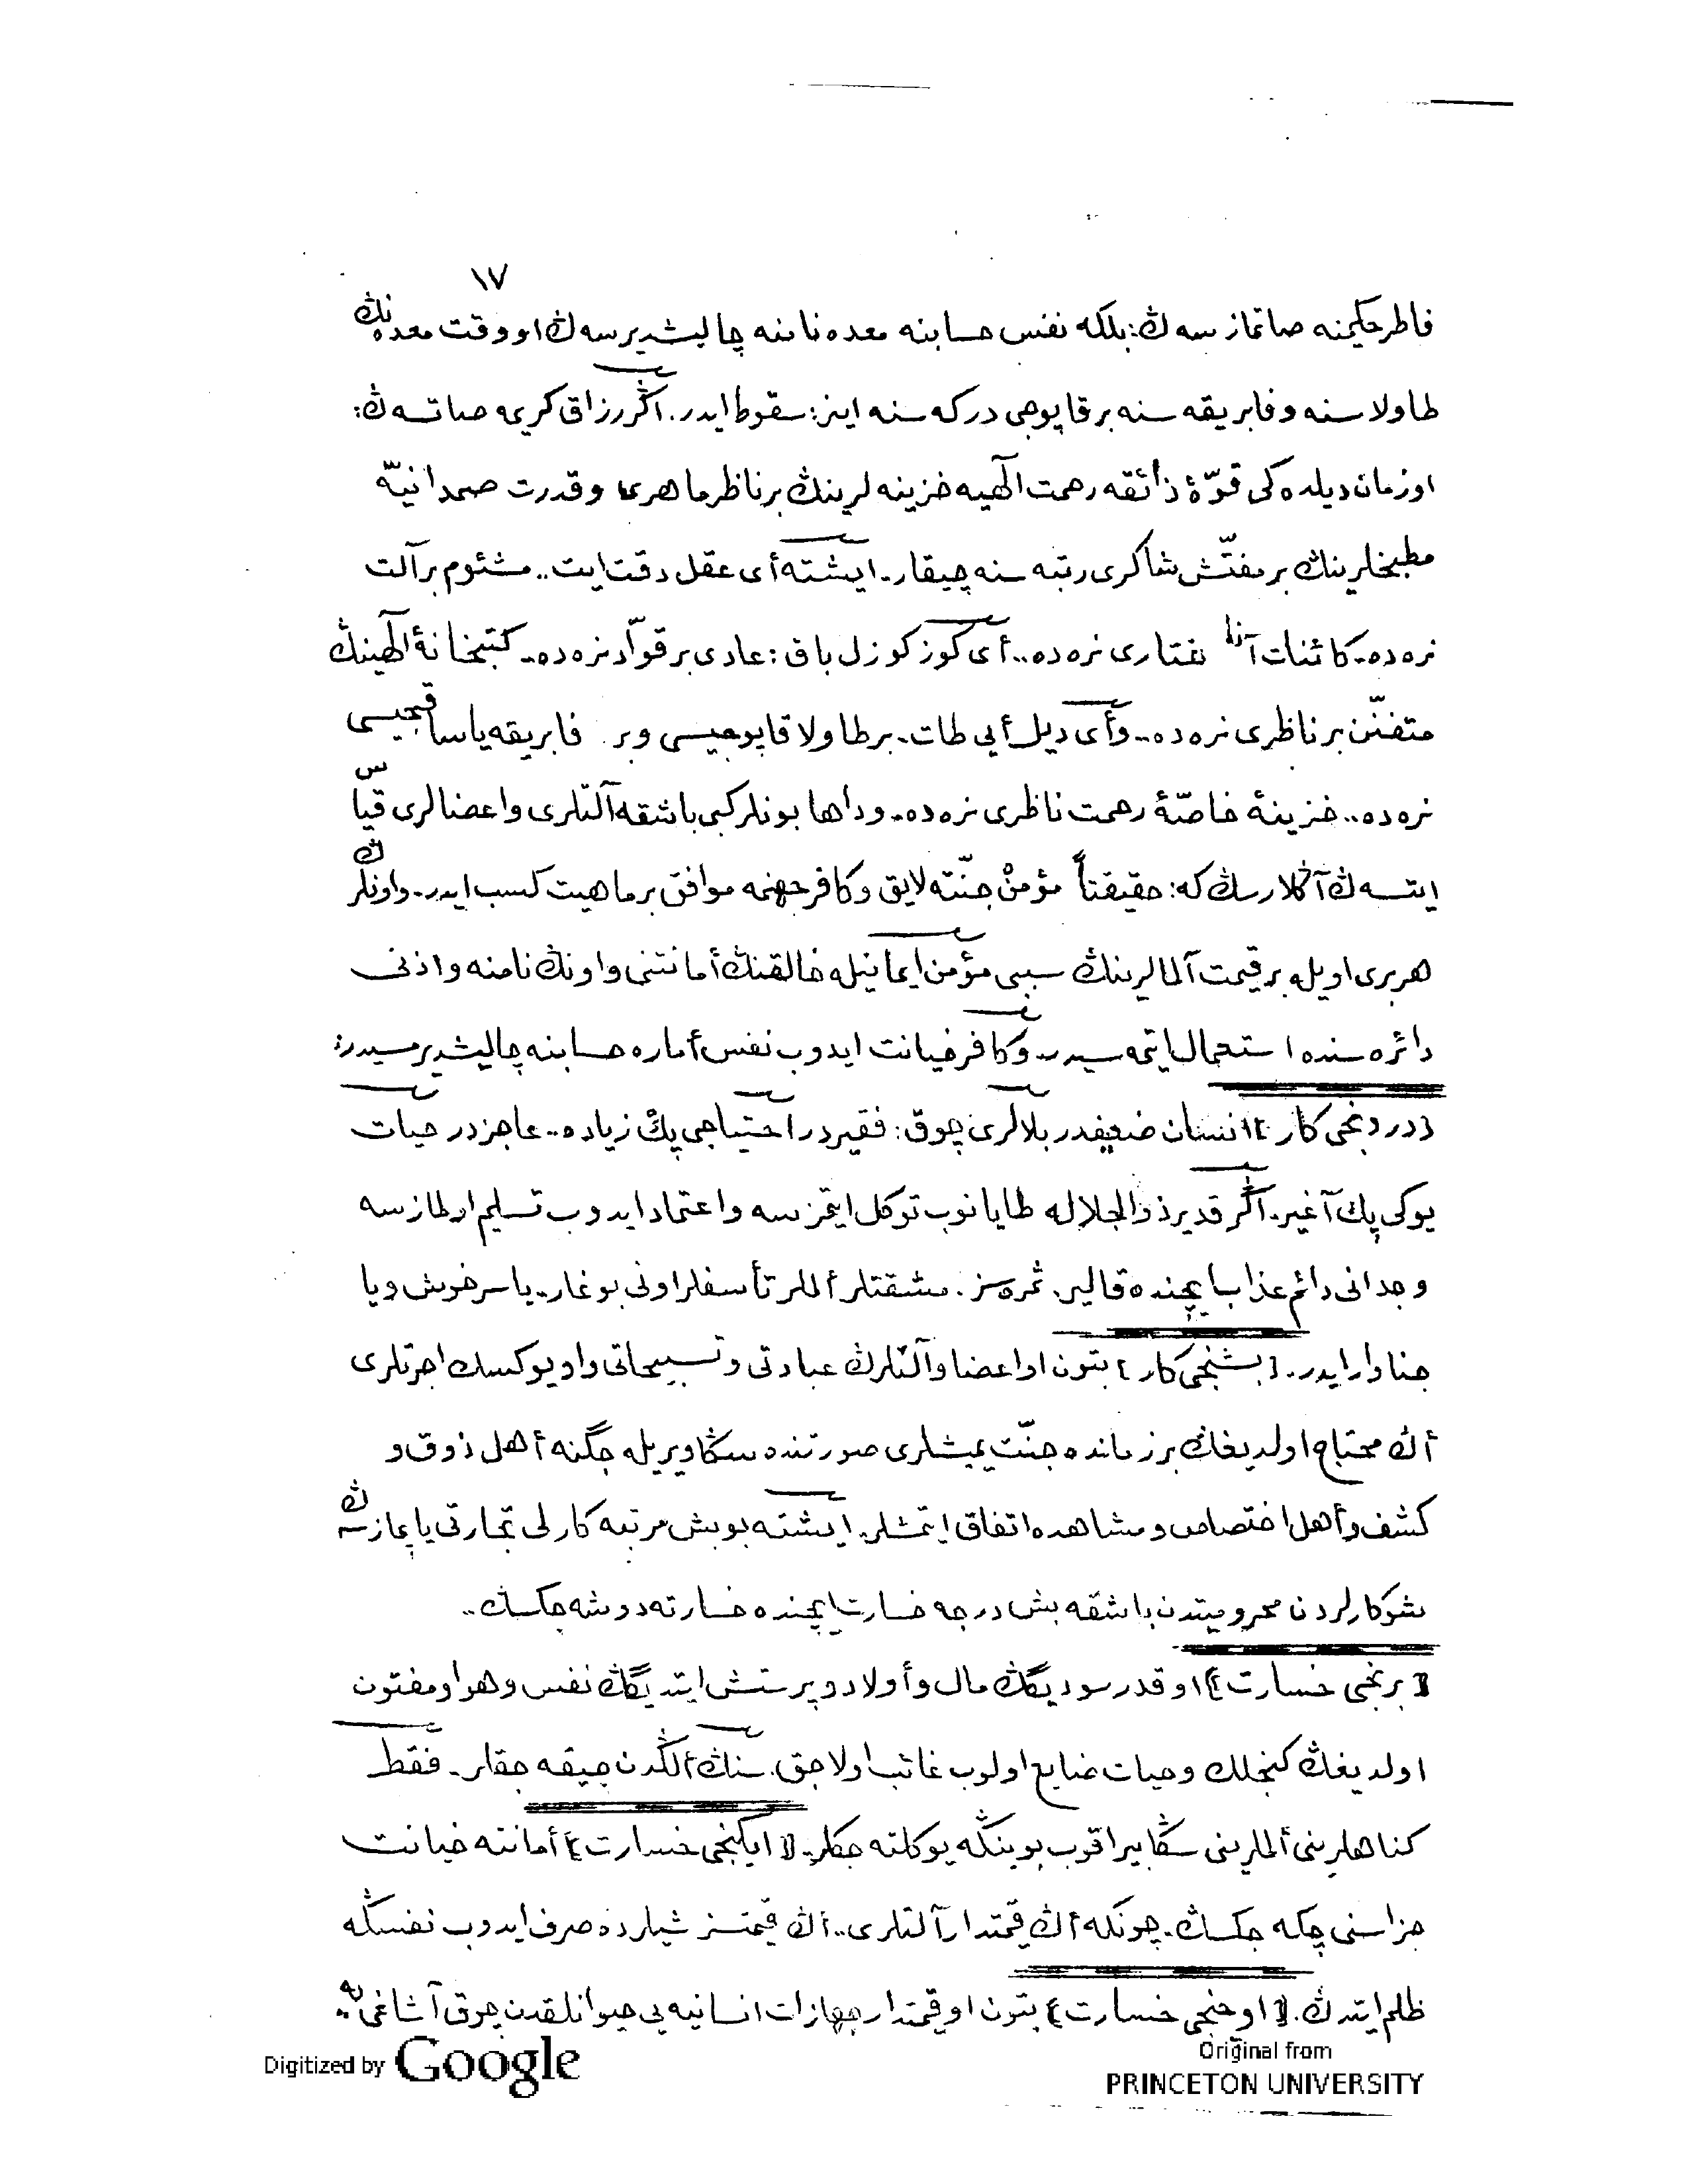 ١٧
فاطر حكيمنه صاتماز سه ڭ؛ بلكه نفس حسابنه معده نامنه چاليشديرسه ڭ او وقت معده نڭ
طاولا سنه و فابريقه سنه بر قاپوجى دركه سنه اينر؛ سقوط ايدر. اگر رزاق كريمه صاتسه ڭ؛
او زمان ديلده كى قوّۀ ذائقه رحمت الٓهيه خزينه لرينڭ بر ناظر ماهرى و قدرت صمدانيّه
مطبخلرينڭ بر مفتّش شاكرى رتبه سنه چيقار. ايشته أى عقل دقت ايت.. مشئوم بر آلت
نره ده. كائنات آناختارى نره ده.. أى كوز كوزل باق: عادى بر قوّاد نره ده.. كتبخانۀ الٓهينڭ
متفنّن بر ناظرى نره ده.. وأى ديل أيى طات. بر طاولا قاپوجيسى وبر فابريقه ياساقجيسى
نره ده.. خزينۀ خاصّۀ رحمت ناظرى نره ده. وداها بونلر كبى باشقه آلتلرى واعضالرى قياس
ايتسه ڭ آڭلارسڭ كه: حقيقتاً مؤمن جنّته لايق و كافر جهنمه موافق بر ماهيت كسب ايدر. واونلرڭ
هر برى اويله بر قيمت آلمالرينڭ سببى مؤمن ايمانيله خالقنڭ أمانتنى واونڭ نامنه واذنى
دائره سنده استعمال ايتمه سيدر. وكافر خيانت ايدوب نفس أماره حسابنه چاليشديرمسيدر:
[دردنجى كار] انسان ضعيفدر بلالرى چوق: فقيردر احتياجى پك زياده.. عاجزدر حيات
يوكى پك آغير. اگر قدير ذوالجلاله طايانوب توكل ايتمزسه واعتماد ايدوب تسليم اولمازسه
وجدانى دائم عذاب ايچنده قالير. ثمره سز. مشقتلر ألملر تأسفلر اونى بوغار. يا سرخوش ويا
جناوار ايدر. [بشنجى كار] بتون او اعضا وآلتلرڭ عبادتى وتسبيحاتى واو يوكسك اجرتلرى
أڭ محتاج اولديغڭ بر زمانده جنّت يمشلرى صورتنده سڭا ويريله جگنه أهل ذوق و
كشف وأهل اختصاص ومشاهده اتفاق ايتمشلر. ايشته بو بش مرتبه كارلى تجارتى ياپمازسه ڭ
شو كارلردن محروميتدن باشقه بش درجه خسارت ايچنده خسارته دوشه جكسڭ..
[برنجى خسارت] او قدر سوديگڭ مال وأولاد و پرستش ايتديگڭ نفس وهوا و مفتون
اولديغڭ كنجلك وحيات ضايع اولوب غائب اولاجق. سنڭ ألڭدن چيقه جقلر. فقط
كناهلرينى ألملرينى سڭا بيراقوب بوينڭه يوكلته جكلر. [ايكنجى خسارت] أمانته خيانت
جزاسنى چكه جكسڭ. چونكه أڭ قيمتدار آلتلرى.. أڭ قيمتسز شيلرده صرف ايدوب نفسڭه
ظلم ايتدڭ. [اوچنجى خسارت] بتون او قيمتدار جهازات انسانيه يى حيوانلقدن چوق آشاغى به
Digitized by Google
Original from
PRINCETON UNIVERSITY